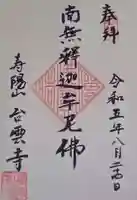 奉拜
令和五年八月二十四日
南無釋迦牟尼佛
寿陽山
台雲寺